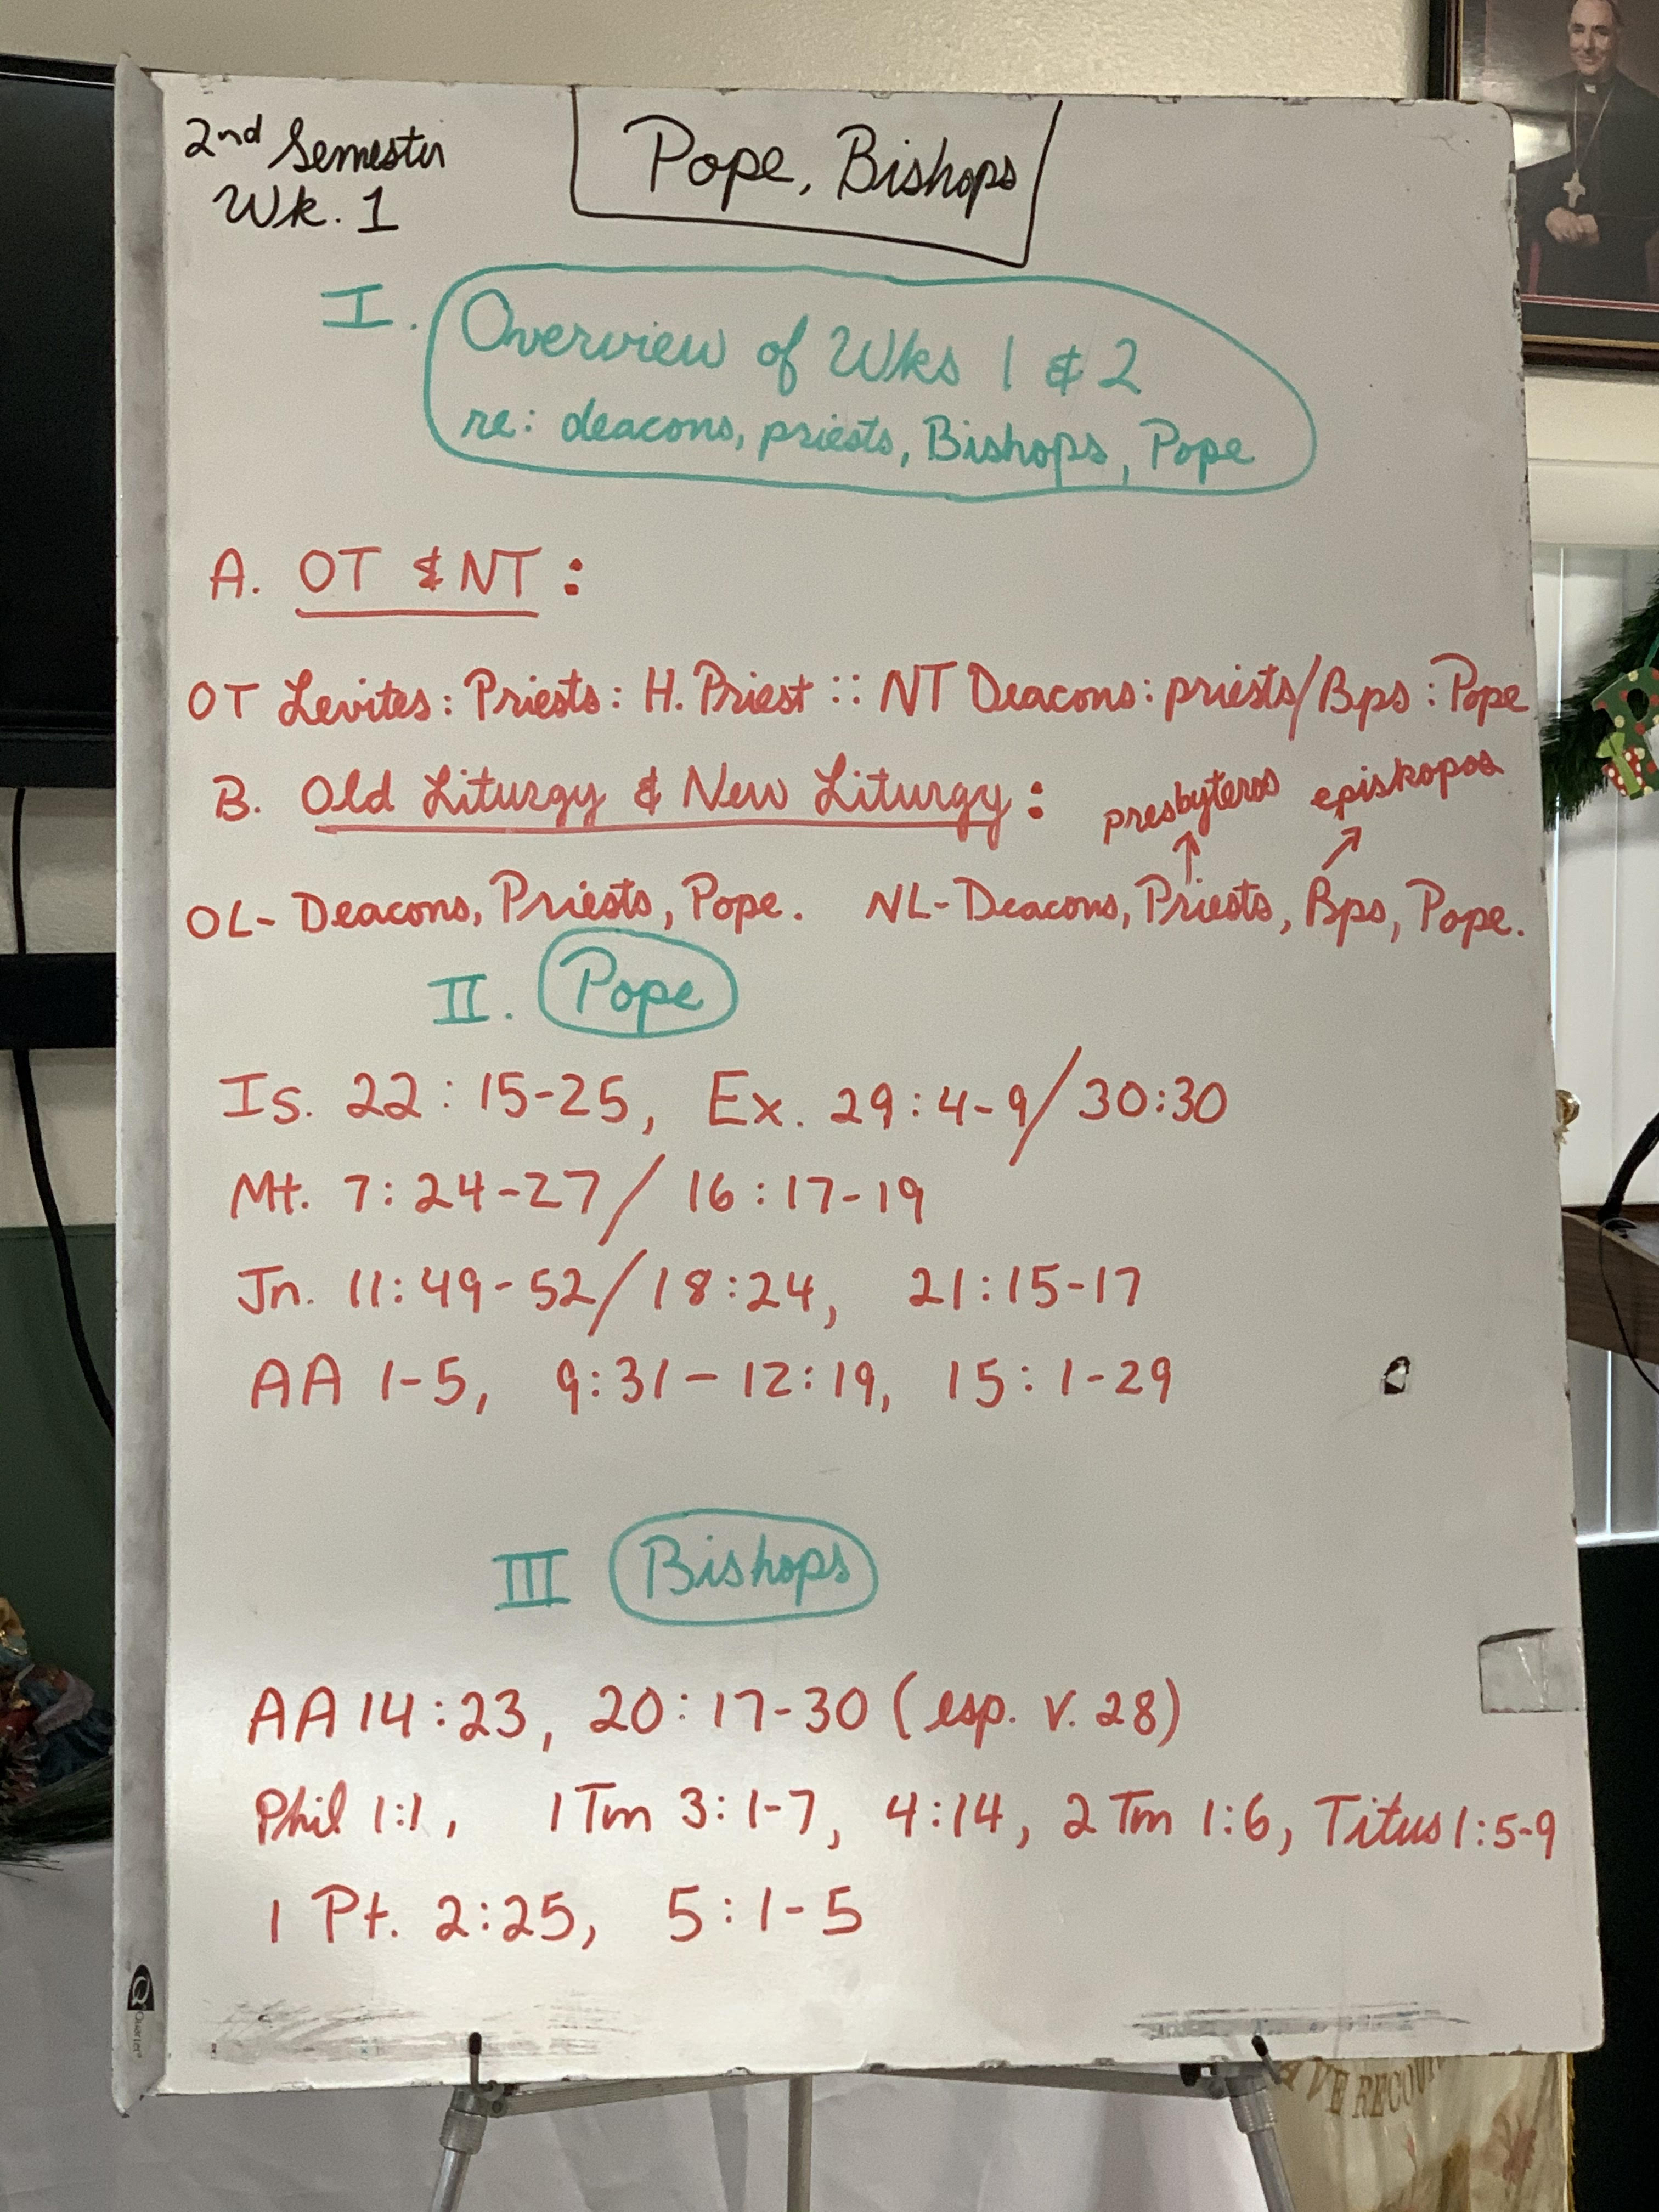 2nd Semester
Wk. 1
Pope, Bishops
I. Overview of Wks 1 & 2
re: deacons, priests, Bishops, Pope
A. OT & NT :
OT Levites : Priests : H. Priest :: NT Deacons : priests/Bps : Pope
B. Old Liturgy & New Liturgy :
presbyteros episkopos
OL- Deacons, Priests, Pope. NL- Deacons, Priests, Bps, Pope.
II. Pope
Is. 22 : 15-25, Ex. 29 : 4-9/30:30
Mt. 7 : 24-27/ 16 : 17-19
Jn. 11 : 49-52/18 : 24, 21 : 15-17
AA 1-5, 9:31 - 12:19, 15 : 1-29
III Bishops
AA 14 : 23, 20 : 17-30 (esp. v. 28)
Phil 1:1, 1 Tm 3 : 1-7, 4:14, 2 Tm 1:6, Titus 1:5-9
1 Pt. 2:25, 5 : 1-5
Quartet